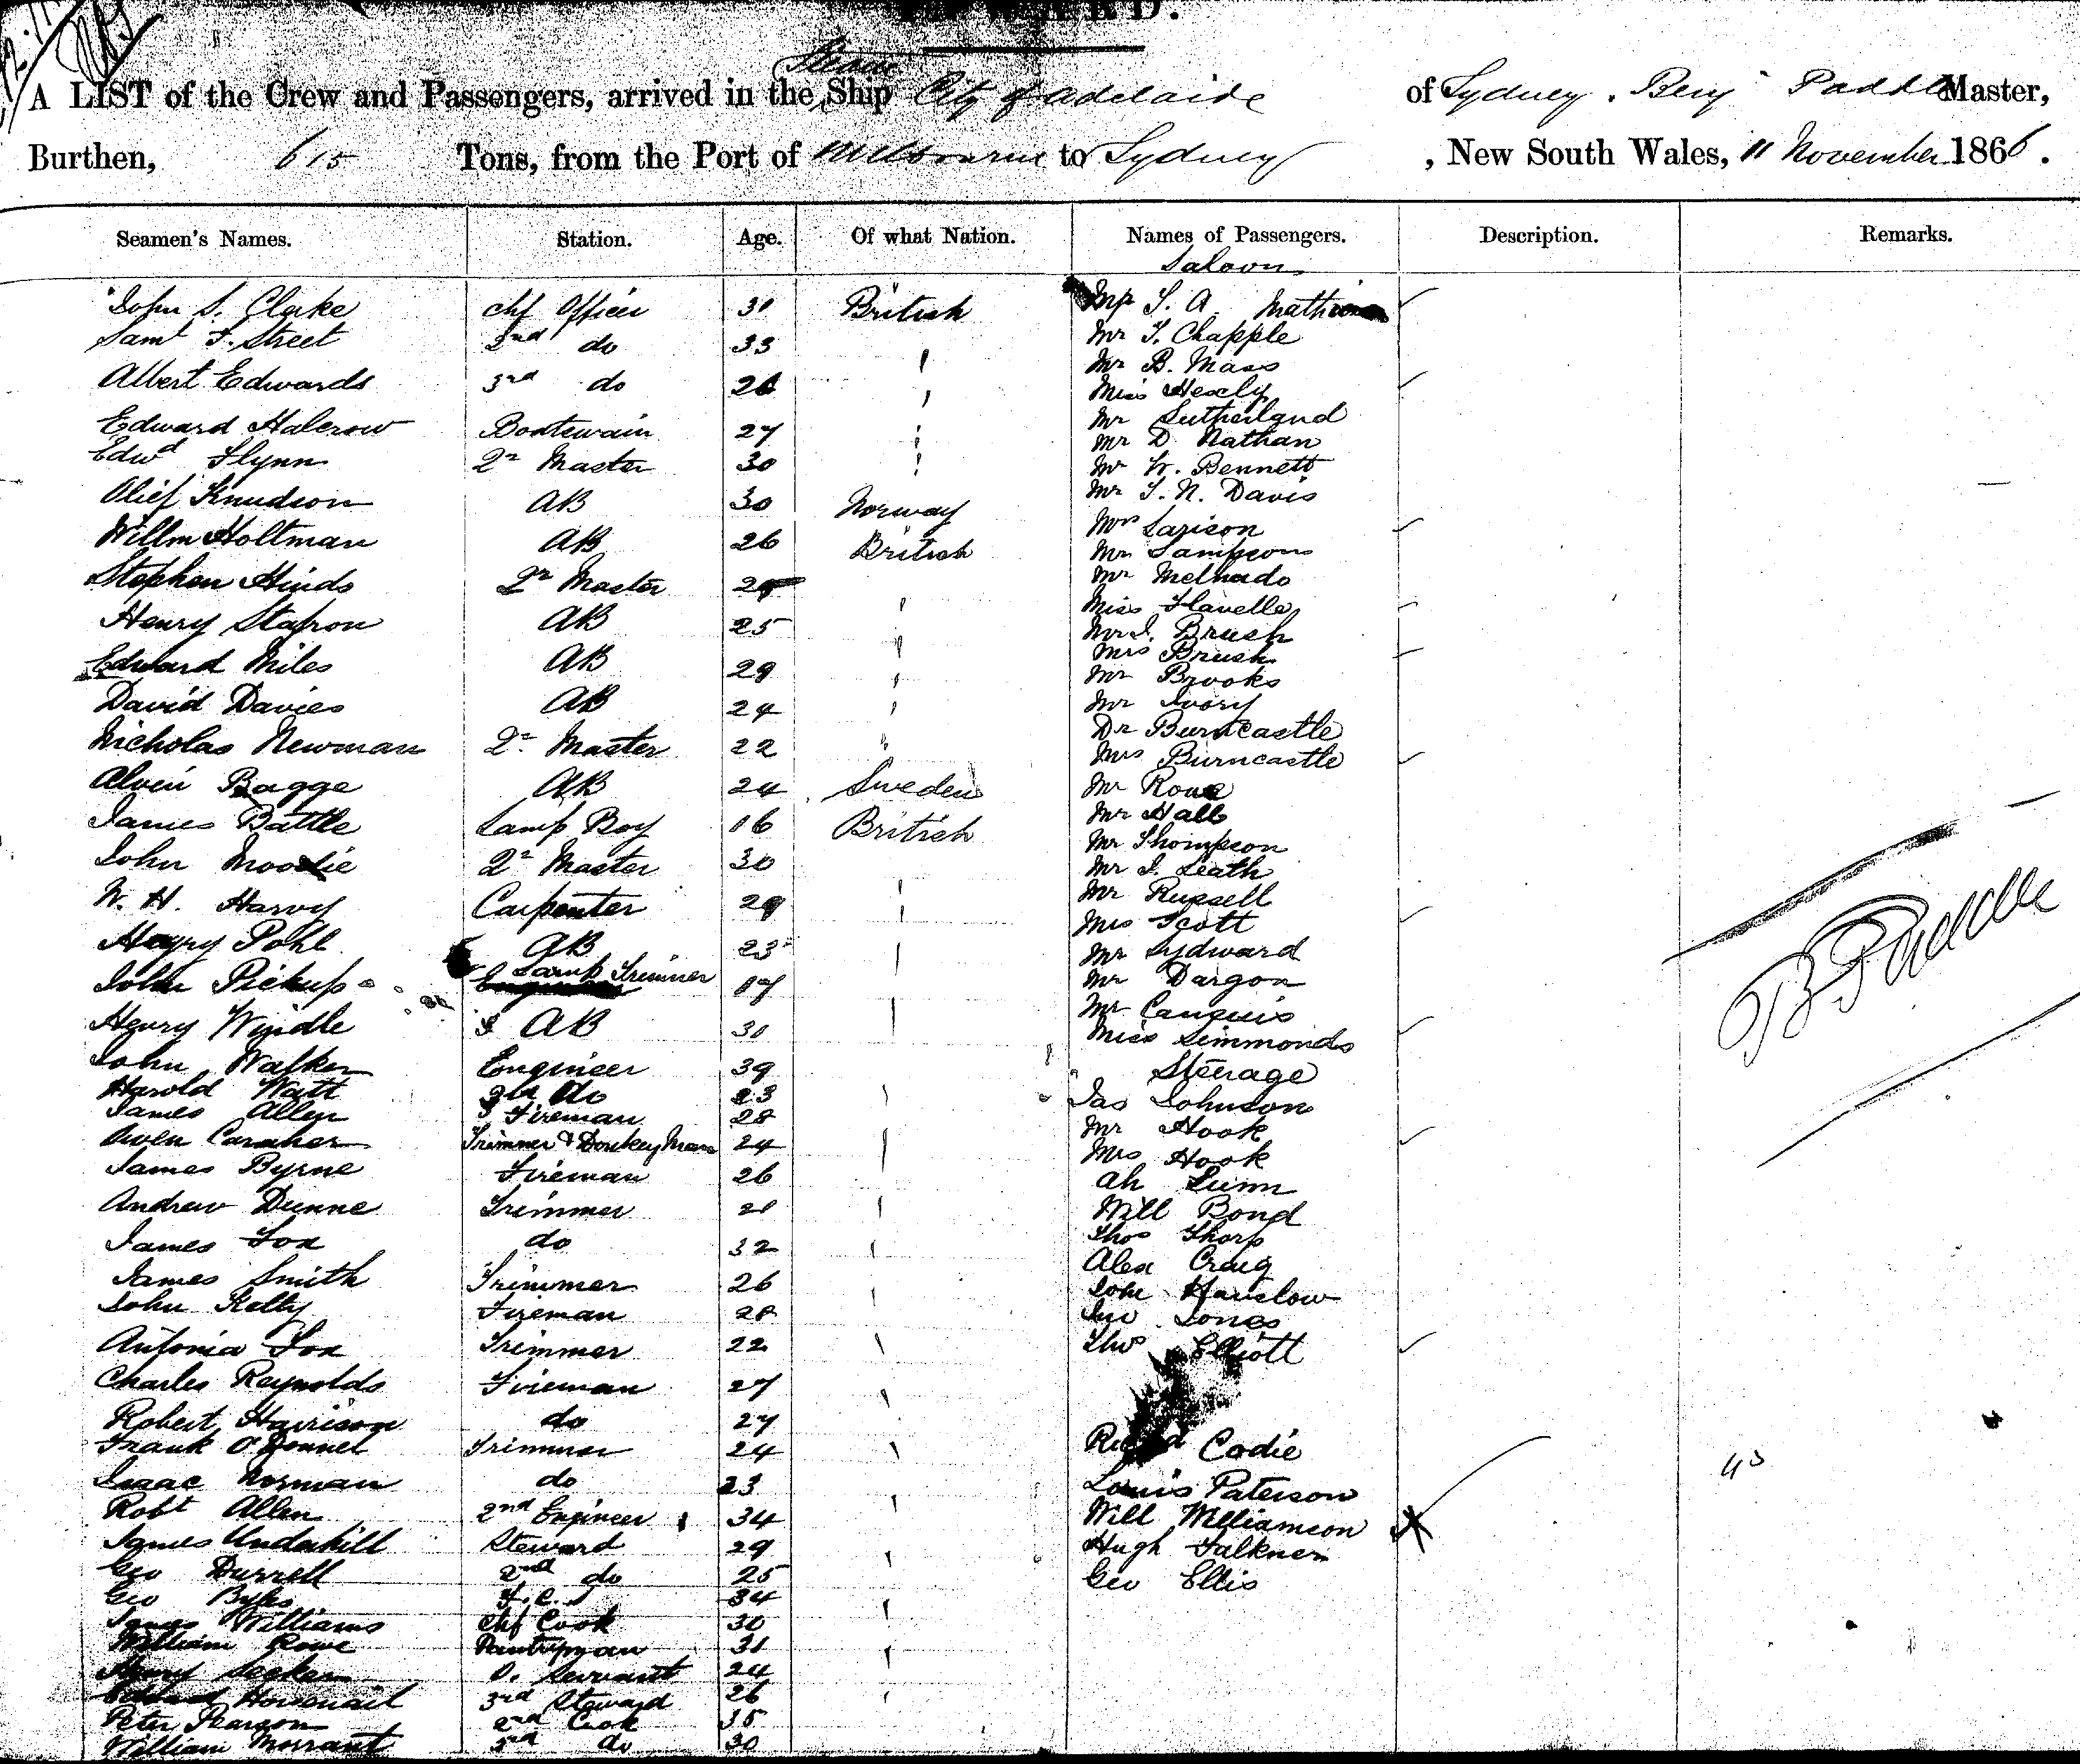 A LIST of the Crew and Passengers, arrived in the Ship City of Adelaide of Sydney, Benj Paddle Master,
Burthen, 615 Tons, from the Port of Melbourne to Sydney, New South Wales, 11 November 1866.
Seamen's Names. Station. Age. Of what Nation. Names of Passengers. Description. Remarks.
Saloon
John S. Clarke chf Officer 31 British
Saml F. Street 2nd do 33
Albert Edwards 3rd do
Edward Halcrow Boatswain 27
Edwd Flynn 2r Master 30
Olief Knudson AB 30 Norway
Willm Holtman AB 26 British
Stephen Hinds 2r Master
Henry AB 25
Edward Miles AB 29
David Davies AB 24
Nicholas Newman 2r Master 22
Alvin Bagge AB 24 Sweden
James Battle Lamp Boy 16 British
John Moodie 2r Master 30
W. H. Harvy Carpenter 29
Pohl AB 23
John Pickup Lamp Trimmer 17
Henry Windle AB 31
John Walker Engineer 39
Harold Watt 3rd do 23
James Allen Fireman 28
Owen Caraher Trimmer & Donkey Man 24
James Byrne Fireman 26
Andrew Dunne Trimmer 21
James Fox do 32
James Smith Trimmer 26
John Kelly Fireman 28
Antonia Fox Trimmer 22
Charles Reynolds Fireman 27
Robert Harrison do 27
Frank O'Donnel Trimmer 24
Isaac Norman do 23
Robt Allen 2nd Engineer 34
James Underhill Steward 29
Geo Durrell 2nd do 25
Geo Byles F.C.S 34
James Williams chf Cook 30
William Rowe Pantryman 31
Henry Servant 24
Horsenail 3rd Steward 26
Peter Pearson 2nd Cook 35
William Morrant 3rd do 30
S. A.
Mr T. Chapple
Mr B. Mass
Miss
Mr Sutherland
Mr D. Nathan
Mr W. Bennett
Mr S. N. Davis
Larison
Mr Sampson
Mr Melhado
Miss Flavelle
Mr J. Brush
Mrs Brush
Mr Brooks
Mr Ivory
Dr Burncastle
Mrs Burncastle
Mr Rowe
Mr Hall
Mr Thompson
Mr J. Leath
Mr Russell
Mrs Scott
Mr Lydward
Mr Dargon
Mr
Miss Simmonds
Steerage
Jas Johnson
Mr Hook
Mrs Hook
Ah
Will Bond
Thos Thorp
Alex Craig
John
Jno Jones
Thos Elliott
Richd Codie
Louis Paterson
Will Williamson
Hugh Falkner
Geo Ellis
B Paddle